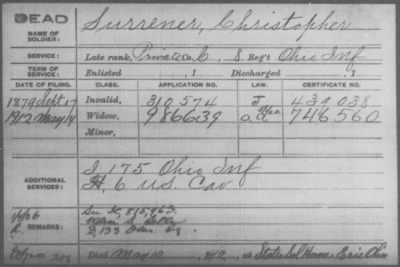 DEAD
NAME OF SOLDIER: Surrener, Christopher
SERVICE: Late rank, Private Co. C, 8 Reg't Ohio Inf
TERM OF SERVICE: Enlisted , 1 Discharged , 1
DATE OF FILING. CLASS. APPLICATION NO. LAW. CERTIFICATE NO.
1879 Sept 17 Invalid, 310574 J 439038
1912 May Widow, 986639 746560
Minor,
ADDITIONAL SERVICES: I, 175 Ohio Inf
H, 6 U.S. Cav
REMARKS:
Died May 10, at State Sol Home, Erie Ohio